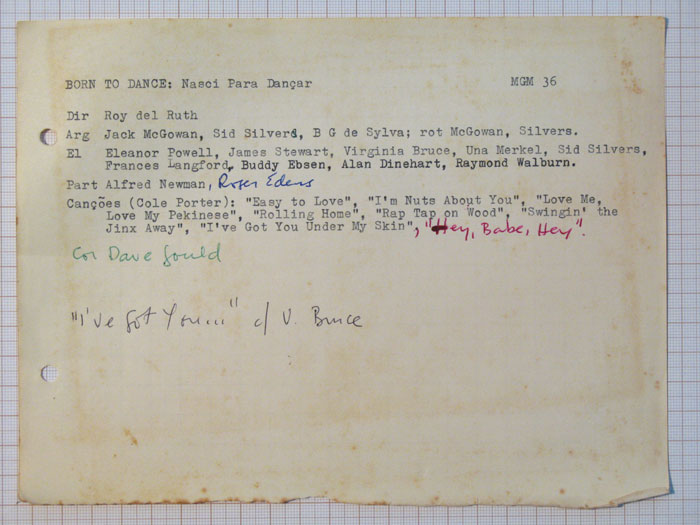 BORN TO DANCE: Nasci Para Dançar MGM 36
Dir Roy del Ruth
Arg Jack McGowan, Sid Silvers, B G de Sylva; rot McGowan, Silvers.
El Eleanor Powell, James Stewart, Virginia Bruce, Una Merkel, Sid Silvers,
Frances Langford, Buddy Ebsen, Alan Dinehart, Raymond Walburn.
Part Alfred Newman, Roger Edens
Canções (Cole Porter): "Easy to Love", "I'm Nuts About You", "Love Me,
Love My Pekinese", "Rolling Home", "Rap Tap on Wood", "Swingin' the
Jinx Away", "I've Got You Under My Skin", "Hey, Babe, Hey".
Cor Dave Gould
"I've got You..." c/ V. Bruce